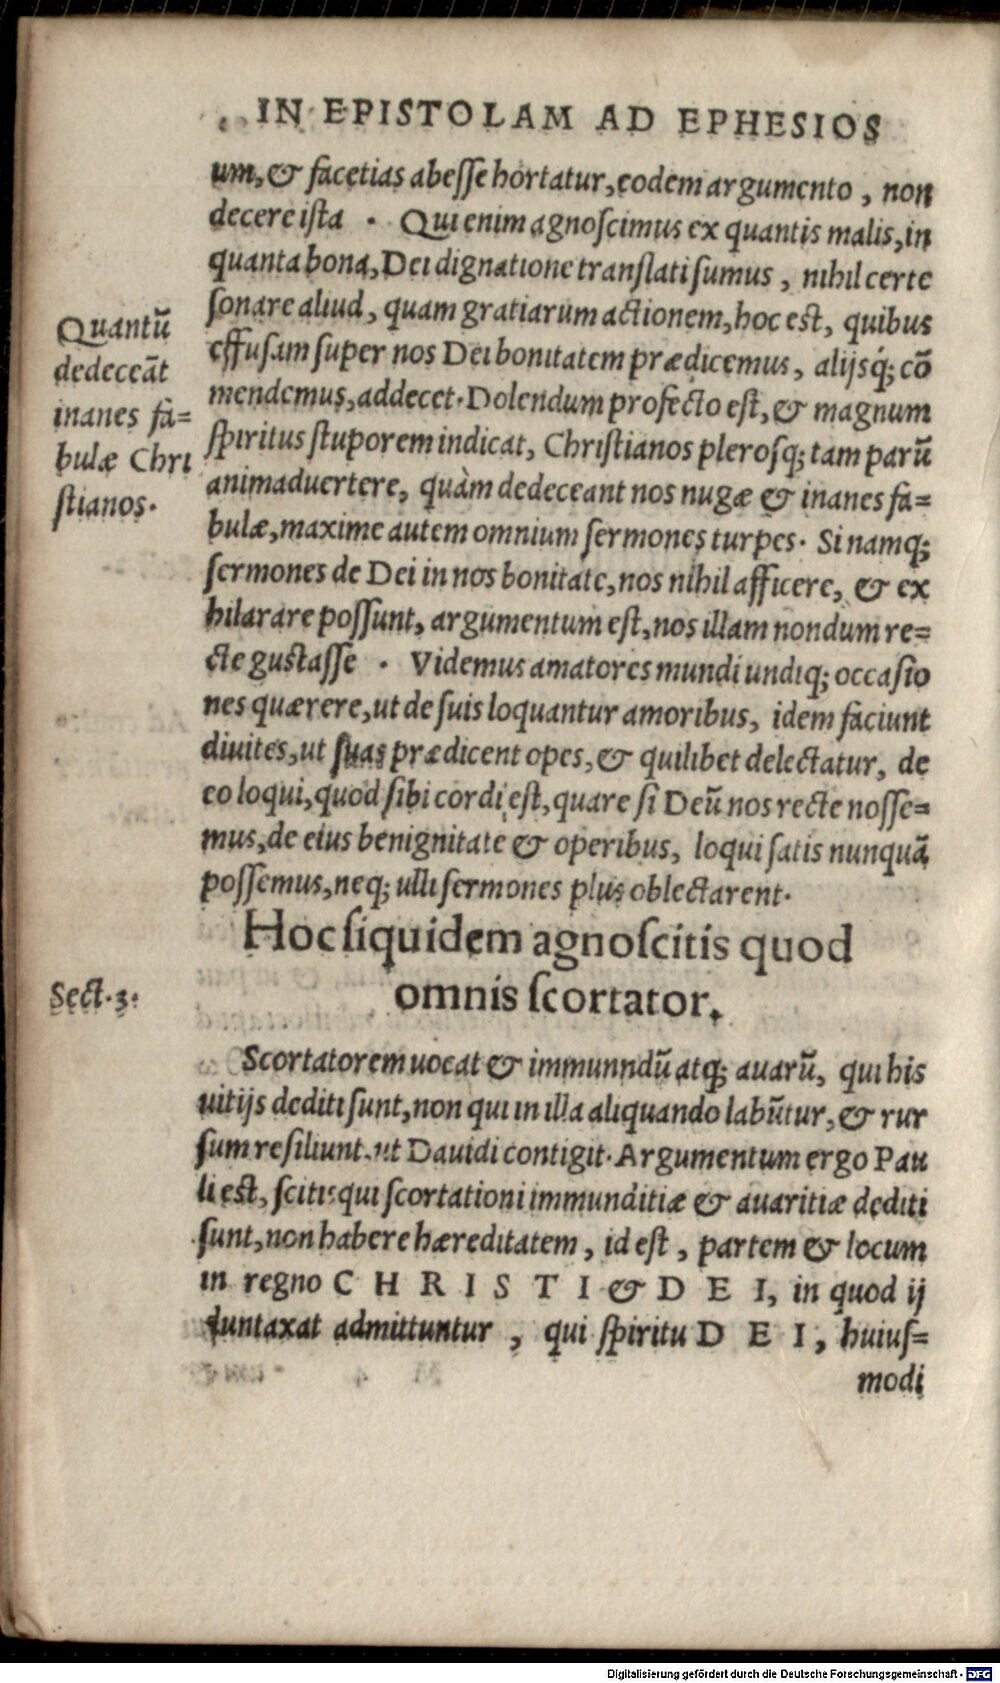 IN EPISTOLAM AD EPHESIOS
um, & facetias abeſſe hortatur, eodem argumento, non
decere iſta . Qui enim agnoſcimus ex quantis malis, in
quanta bona, Dei dignatione tranſlati ſumus, nihil certe
ſonare aliud, quam gratiarum actionem, hoc est, quibus
effuſam ſuper nos Dei bonitatem prædicemus, alijsq́; cõ
mendemus, addecet. Dolendum profecto eſt, & magnum
ſpiritus ſtuporem indicat, Chriſtianos pleroſq; tam parũ
animaduertere, quàm dedeceant nos nugæ & inanes fa=
bulæ, maxime autem omnium ſermones turpes. Si namq;
ſermones de Dei in nos bonitate, nos nihil afficere, & ex
hilarare poſſunt, argumentum eſt, nos illam nondum re=
cte guſtaſſe . Videmus amatores mundi undiq; occaſio
nes quærere, ut de ſuis loquantur amoribus, idem faciunt
diuites, ut ſuas prædicent opes, & quilibet delectatur, de
eo loqui, quod ſibi cordi eſt, quare ſi Deũ nos recte noſſe=
mus, de eius benignitate & operibus, loqui ſatis nunquã
poſſemus, neq; ulli ſermones plus oblectarent.
Quantũ
dedeceãt
inanes fa=
bulæ Chri
ſtianos.
Hoc ſiquidem agnoſcitis quod
omnis ſcortator.
Sect. 3.
Scortatorem uocat & immunndũ atq; auarũ, qui his
uitijs dediti ſunt, non qui in illa aliquando labũtur, & rur
ſum reſiliunt. ut Dauidi contigit. Argumentum ergo Pau
li eſt, ſcitis qui ſcortationi immunditiæ & auaritiæ dediti
ſunt, non habere hæreditatem, id eſt, partem & locum
in regno C H R I S T I & D E I, in quod ij
duntaxat admittuntur, qui ſpiritu D E I, huiuſ=
modi
Digitalisierung gefördert durch die Deutsche Forschungsgemeinschaft - DFG